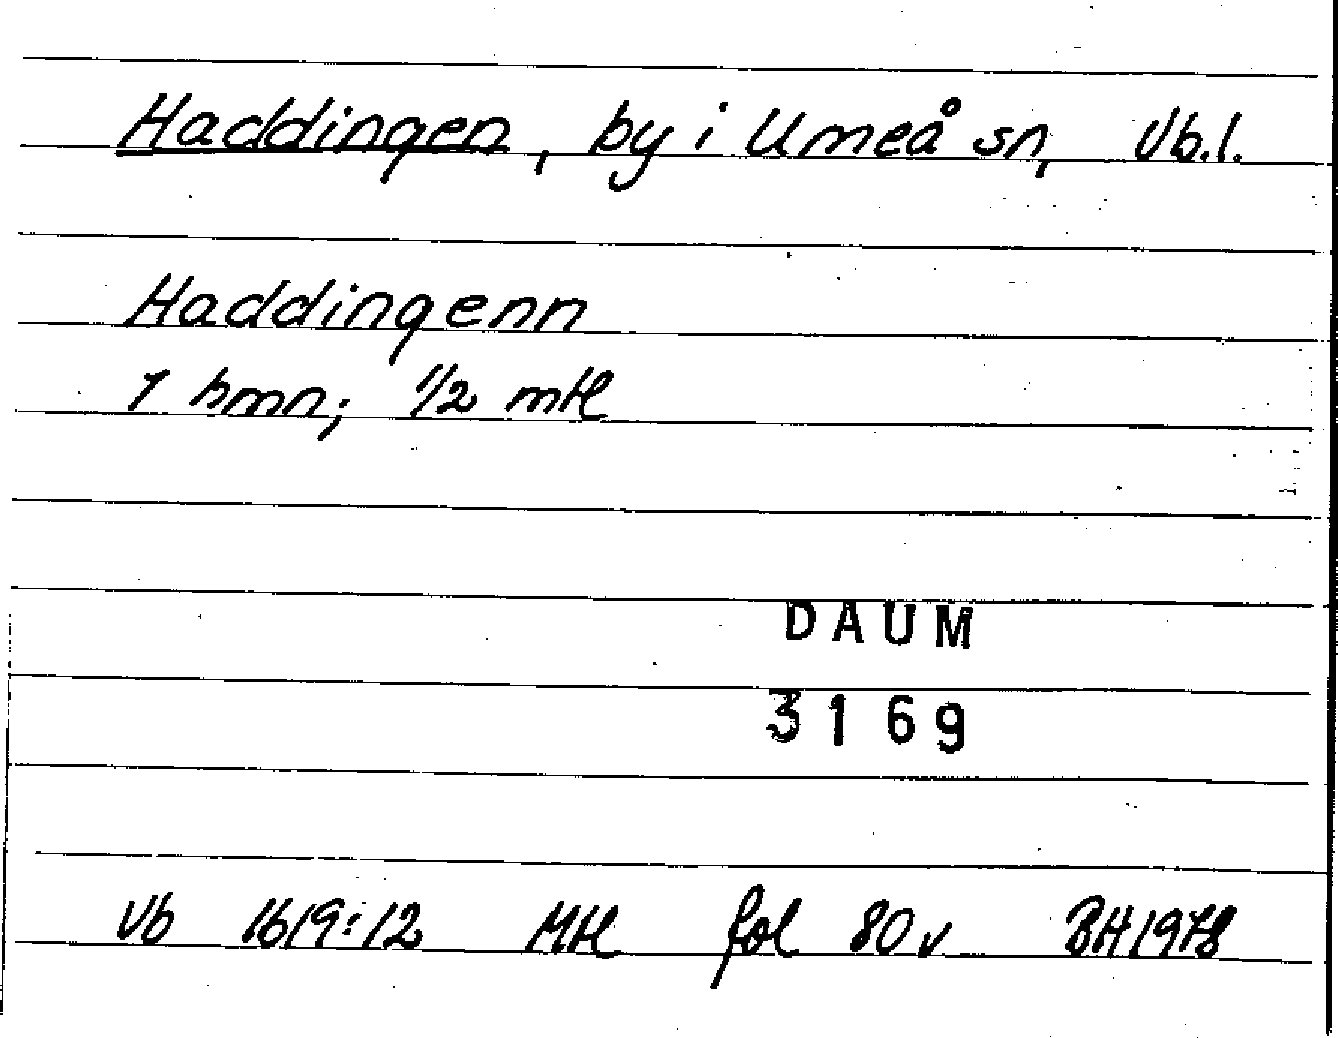 Haddingen, by i Umeå sn, Vb.l.
Haddingenn
1 hmn; 1/2 mtl
DAUM
3169
Vb 1619:12 Mtl fol 80 v BH 1978